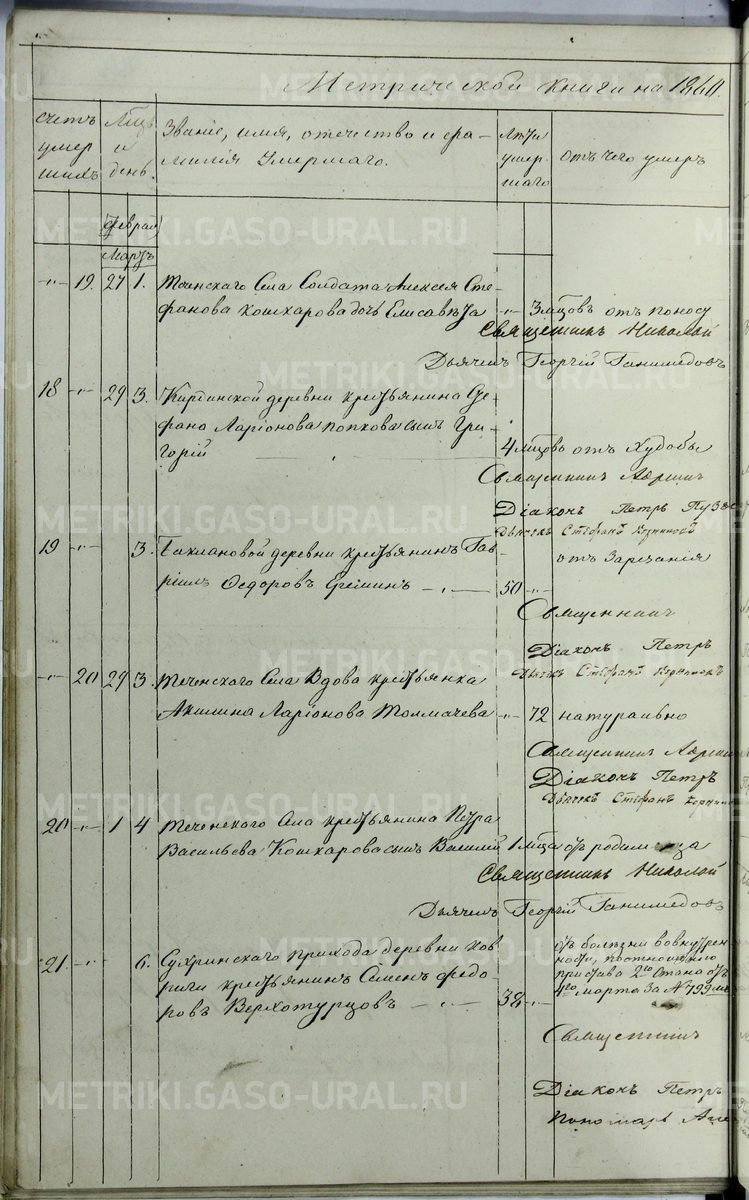 Метрической книги на 1860.
счетъ умер шихъ
Мцъ и день.
Званіе, имя, отечество и фа-
милія Умершаго.
Лѣта умер- шаго
отъ чего умеръ
Феврал
Мартъ
19. 27 1. Села Солдата Алексея Сте-
фанова Кошкарова дочь Елисавета 3 мцовъ отъ поносу
Священникъ Николай
Дьячекъ Георгій Ганимедовъ
18 29 3. Кирдинской деревни крестьянина Сте-
фана Ларіонова Попкова сынъ Гри-
горій 4 мцовъ отъ Худобы
Священникъ
Діаконъ Петръ
Дьячекъ Стефанъ
19 3. деревни крестьянинъ Гав-
ріилъ Федоровъ Ереминъ 50 отъ Зарезанія
Священникъ
Діаконъ Петръ
Дьячекъ Стефанъ
20 29 3. Теченскаго Села Вдова крестьянка
Акилина Ларіонова Толмачева 72 натурально
Священникъ
Діаконъ Петръ
Дьячекъ Стефанъ
20 1 4 Теченскаго Села крестьянина Петра
Васильева Кошкарова сынъ Василій 1 мца отъ родимца
Священникъ Николай
Дьячекъ Георгій Ганимедовъ
21 6. Сухринскаго прихода деревни Ков-
риги крестьянинъ Семенъ Федо-
ровъ Верхотурцовъ 38
отъ болезни во внутрен-
ности, по отношенію
пристава 2го Стана отъ
4го Марта за № 799мъ
Священникъ
Діаконъ Петръ
Пономарь
METRIKI.GASO-URAL.RU